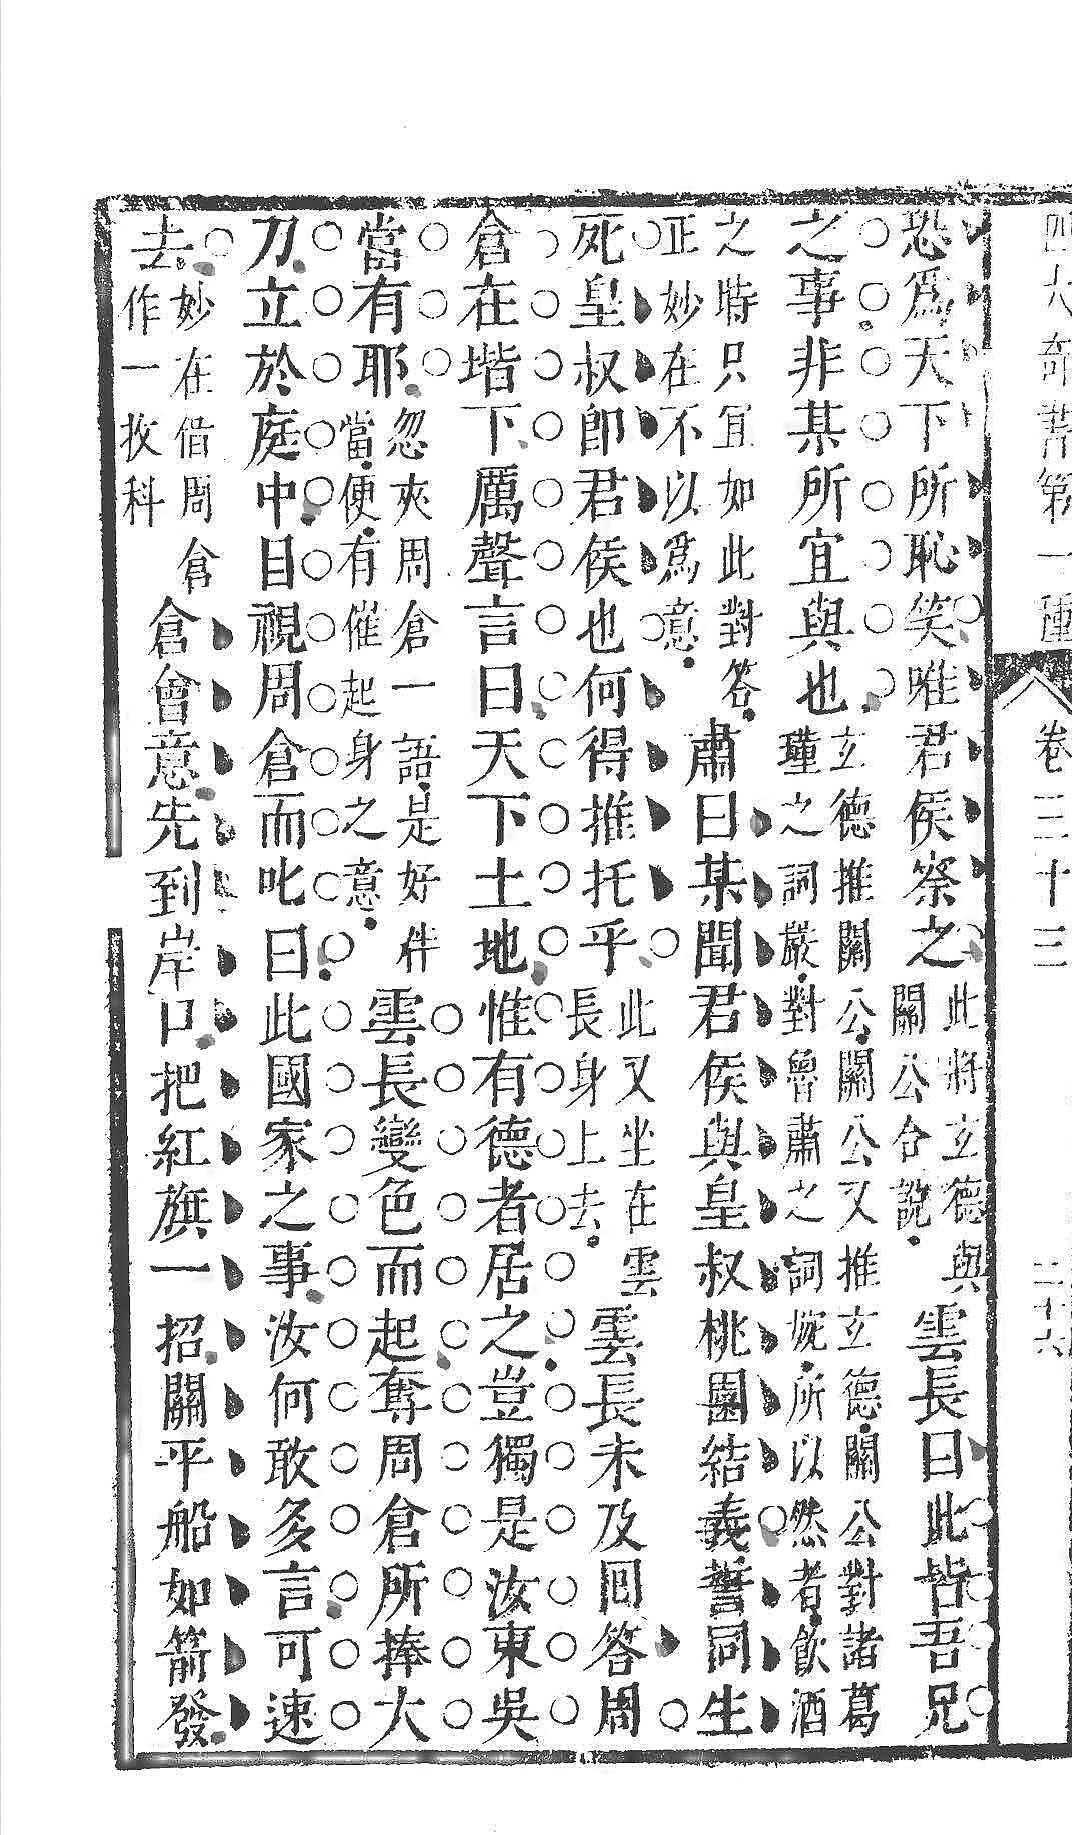 四大奇書第一種 卷三十三 二十六
恐爲天下所恥笑唯君侯察之此將玄德與關公合說雲長曰此皆吾兄
之事非某所宜與也玄德推關公關公又推玄德關公對諸葛瑾之詞嚴對魯肅之詞婉所以然者飲酒
之時只宜如此對答正妙在不以爲意肅曰某聞君侯與皇叔桃園結義誓同生
死皇叔卽君侯也何得推托乎此又坐在雲長身上去雲長未及回答周
倉在堦下厲聲言曰天下土地惟有德者居之豈獨是汝東吳
當有耶忽夾周倉一語是好伴當便有催起身之意雲長變色而起奪周倉所捧大
刀立於庭中目視周倉而叱曰此國家之事汝何敢多言可速
去妙在借周倉作一收科倉會意先到岸口把紅旗一招關平船如箭發